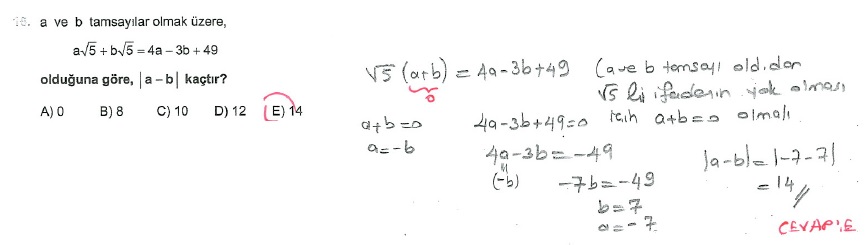 16. a ve b tamsayılar olmak üzere,
a√5 + b√5 = 4a − 3b + 49
olduğuna göre, |a − b| kaçtır?
A) 0 B) 8 C) 10 D) 12 E) 14
√5 (a+b) = 4a-3b+49 (a ve b tamsayı old.dan
0 √5 li ifadenin yok olması
için a+b=0 olmalı
a+b=0 4a-3b+49=0
a=-b 4a-3b=-49 |a-b|=|-7-7|
(-b) -7b=-49 =14
b=7
a=-7
CEVAP:E